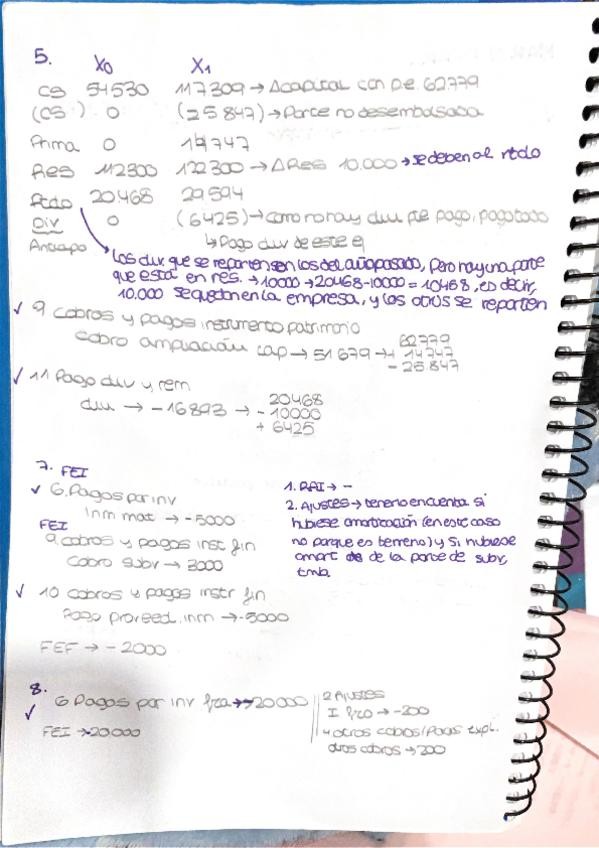 5. X0 X1
CS 54530 117309 → Δcapital con p.e. 62779
(CS) 0 (25847) → Parte no desembolsada
Prima 0 14747
Res 112300 122300 → ΔRes 10.000 → se deben al rtdo
Rtdo 20468 29594
Div 0 (6425) → como no hay divi pte pago, pagotodo
Anticipo ↳ Pago div de este ej
Los div. que se reparten son los del año pasado, pero hay una parte
que está en res. → 10000 → 20468-10000 = 10468, es decir,
10.000 se quedan en la empresa, y los otros se reparten
✓ 9 Cobros y pagos instrumento patrimonio
Cobro ampliación cap → 51679 → 62779
+ 14747
- 25.847
✓ 11 Pago div y rem
div → -16893 → 20468
- 10000
+ 6425
7. FEI
✓ 6. Pagos por inv
Inm mat → -5000
FEI
9. cobros y pagos inst fin
Cobro subv → 3000
✓ 10 cobros y pagos instr fin
Pago proveed. inm → -5000
FEF → -2000
1. RAI → -
2. Ajustes → tenerlo en cuenta si
hubiese amortización (en este caso
no porque es terreno) y si hubiese
amort de la parte de subv,
tmb.
8.
✓ 6 Pagos por inv fra → -20000
FEI → -20000
2 Ajustes
I fro → -200
4 otros cobros/Pagos expl.
otros cobros → 200